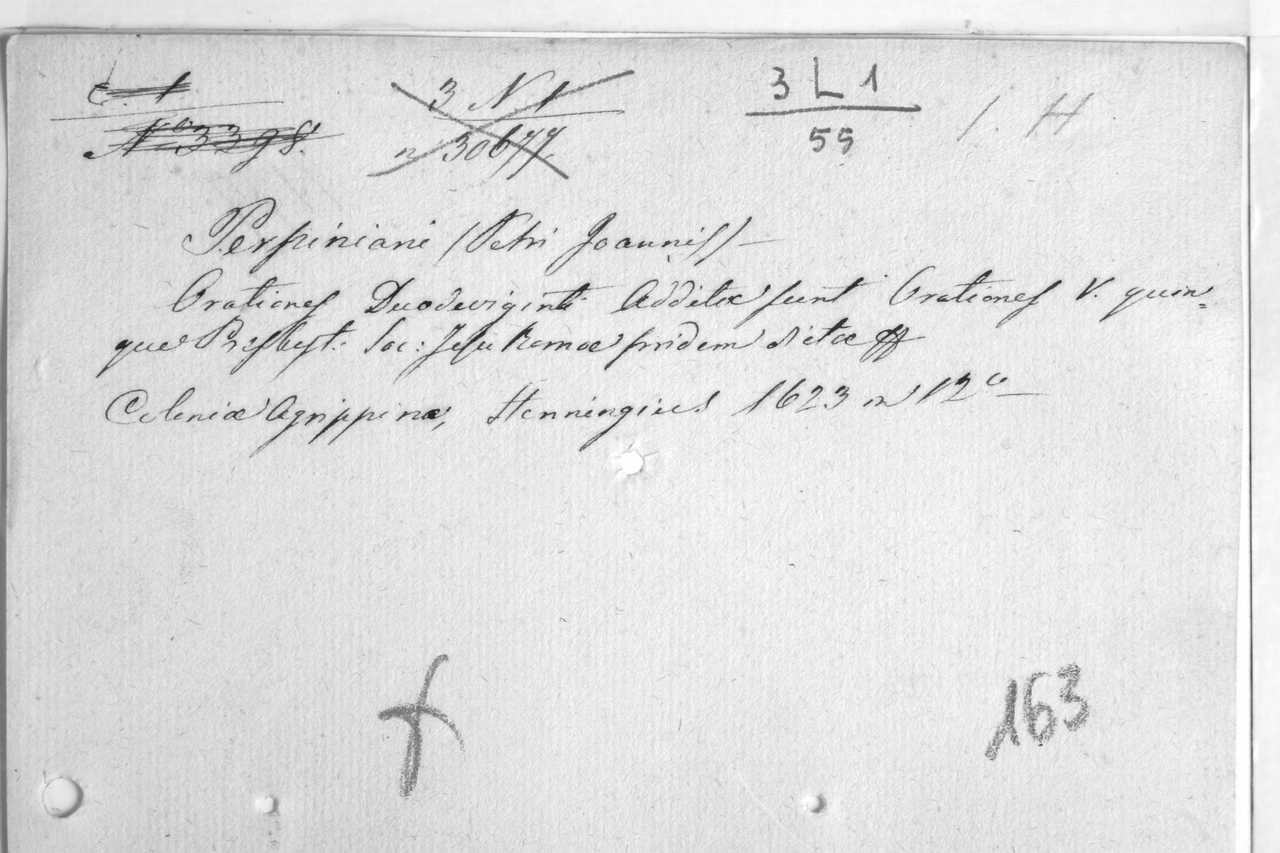 C. 1
No 3398.
3 N. 1
n 30677.
3 L 1
55
1. H
Perpiniani (Petri Joannis) —
Orationes Duodeviginti Additæ sunt Orationes V. quin-
que Presbyt: Soc: Jesu Romæ pridem dictæ
Coloniæ Agrippinæ, Henningius 1623 in 12o —
163